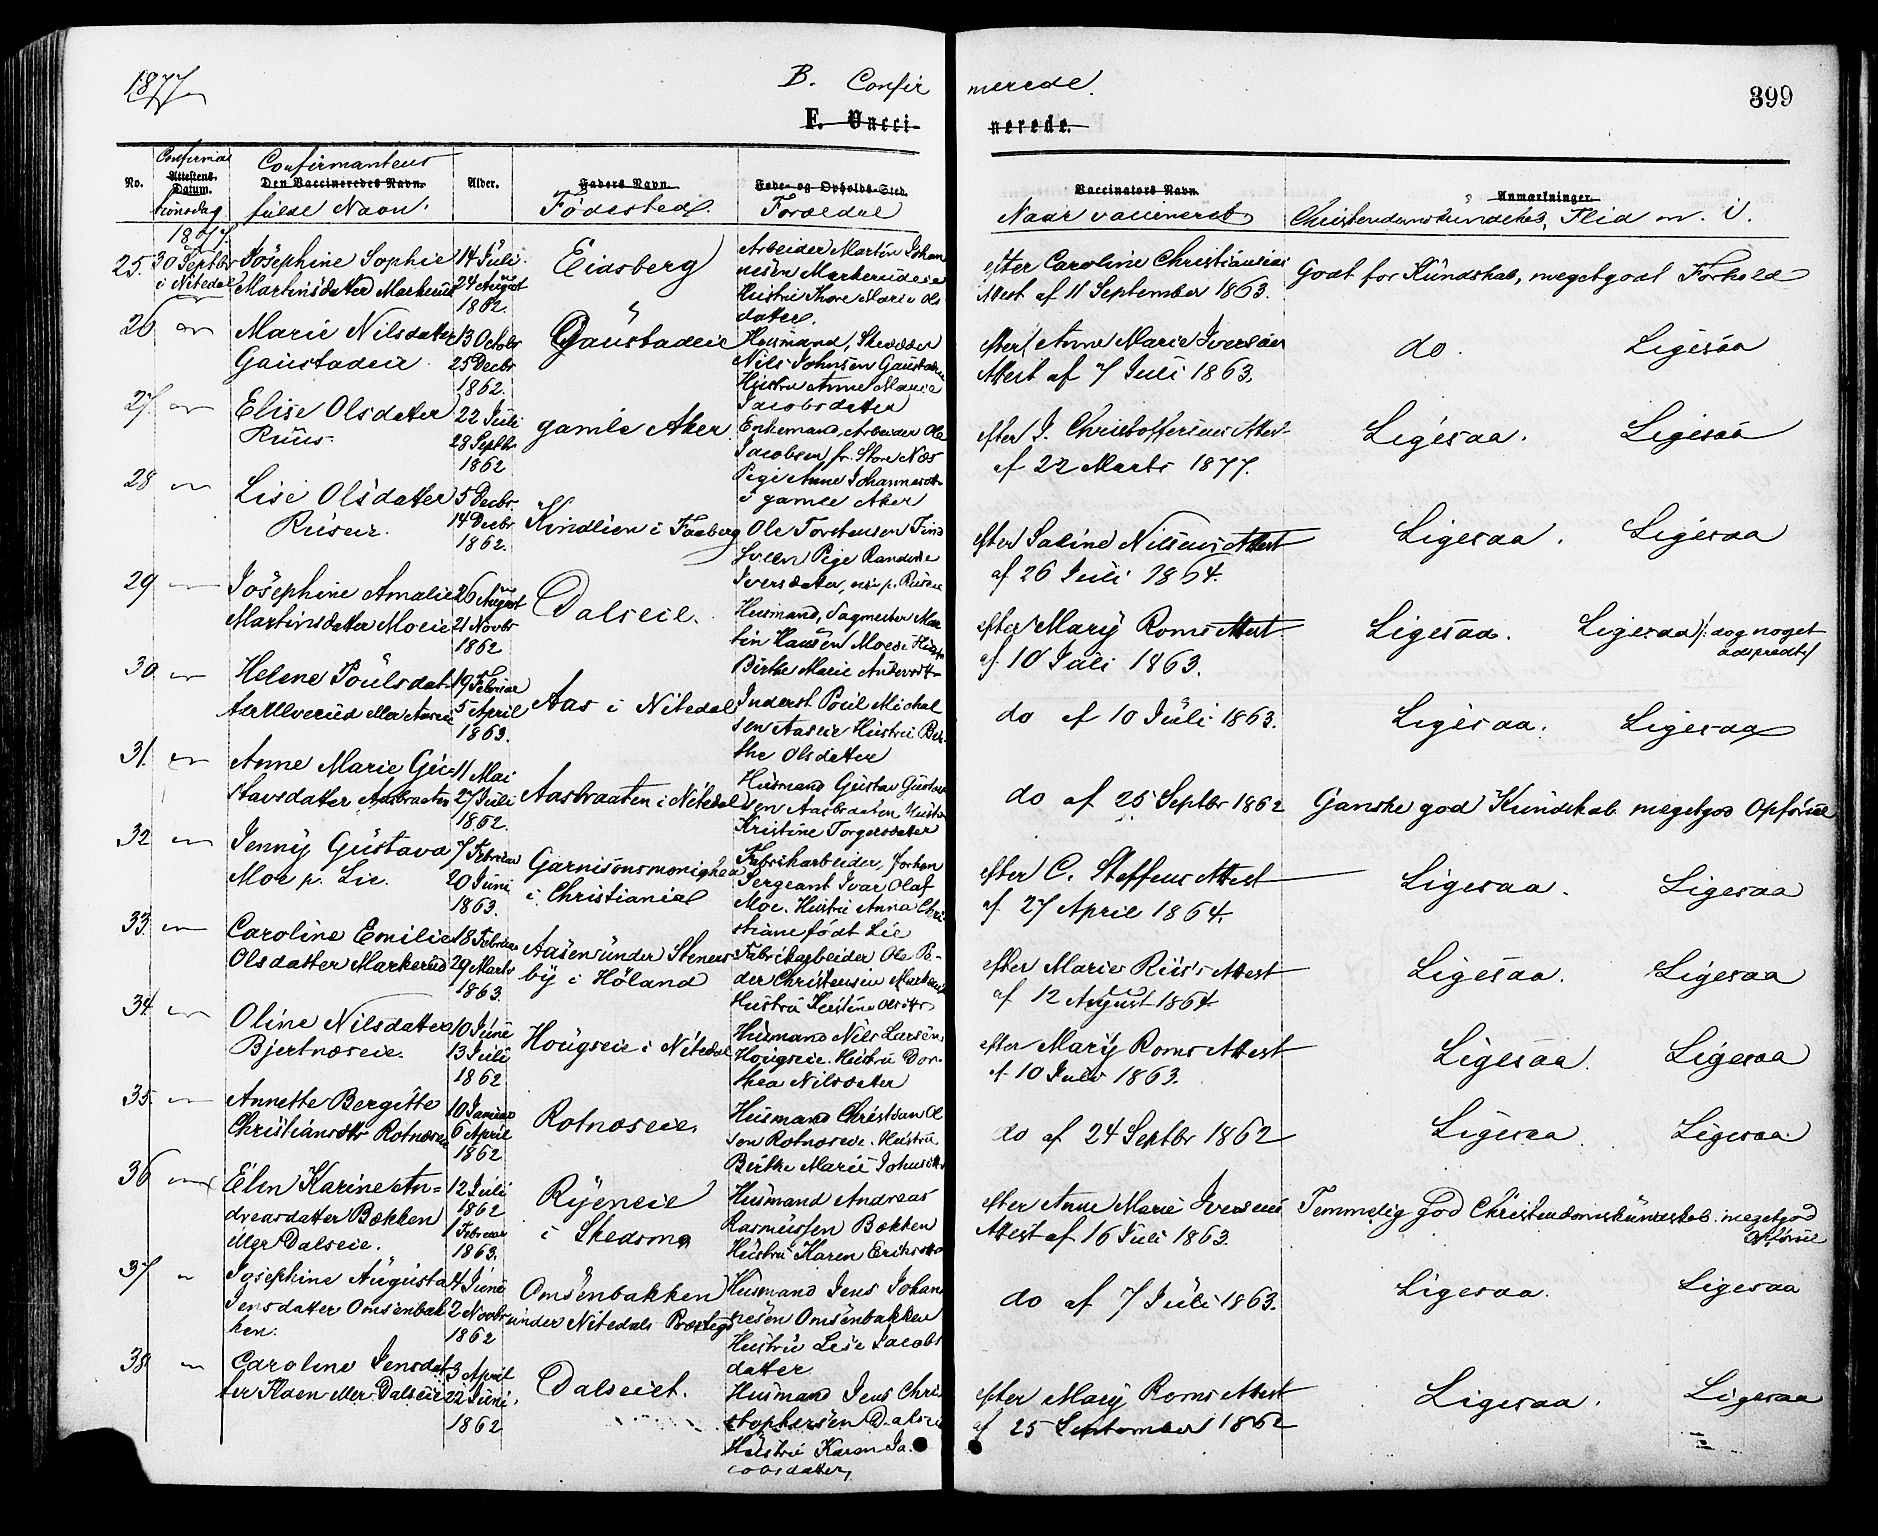 1877
B. Confir merede.
399
F. Vacci- nerede.
No.
Attestens Datum.
Confirmantens
Den Vaccineredes Navn.
fulde Navn.
Alder.
Faders Navn.
Fødested.
Føde- og Opholds-Sted.
Forældre
Vaccinators Navn.
Naar vaccineret
Anmærkninger.
Christendomskundskab, Flid m. V.
1877.
25. 30 Septbr Josephine Sophie 14 Juli Eidsberg Arbeider Martin Johan efter Caroline Christiansens Godt for Kundskab, megetgodt Forhold
i Nitedal Martinsdatter Markerud 24 August nesen Markerudeie Attest af 11 September 1863.
1862. Hustru Thore Marie Ols
datter.
26 Marie Nilsdatter 13 Octobr Gaustadeie Husmand, Skrædder efter Anne Marie Iversens do. Ligesaa
Gaustadeie 25 Decbr Nils Johnsen Gaustadeie Attest af 7 Juli 1863.
1862. Hustru Anne Marie
Jacobsdatter
27. Elise Olsdatter 22 Juli gamle Aker. Enkemand, Arbeider Ole efter J. Christoffersens Attest Ligesaa. Ligesaa
Ruus 28 Septbr Jacobsen fr. Store Næs af 22 Marts 1877.
1862 Pige Anne Johannesdt
i gamle Aker
28 Lise Olsdatter 5 Decbr. Kindlien i Faaberg Ole Torstensen efter Saline Nilsens Attest Ligesaa. Ligesaa
Rüseie. 14 Decbr. Pige Randine af 26 Juli 1864.
1862. Iversdatter,
29 Josephine Amalie 26 August Dalseie. Husmand, Sagmester Mar efter Mary Roms Attest Ligesaa. Ligesaa /: dog noget
Martinsdatter Moeie 21 Novbr tin Hansen Moeie Hustru af 10 Juli 1863. adspredt :/
1862 Birthe Marie Andersdt
30. Helene Poulsdat- 19 Februar Aas i Nitedal Inderst Poul Michel do af 10 Juli 1863. Ligesaa. Ligesaa
ter Ulverud eller Aaseie 5 April sen Aaseie Hustru Ber-
1863. the Olsdatter
31. Anne Marie Gu- 11 Mai Aasbraaten i Nitedal Husmand Gustav Gustav do af 25 Septbr 1862 Ganske god Kundskab megetgod Opførsel
stavsdatter Aasbraaten 27 Juli sen Aasbraaten Hustru
1862. Kristine Torgersdatter
32 Jenny Gustava 7 Februar Garnisonsmenighed Fabrikarbeider, forhen efter C. Steffens Attest Ligesaa. Ligesaa
Moe p. Lie. 20 Juni i Christiania Sergeant Ivar Olaf af 27 April 1864.
1863. Moe. Hustru Anna Chri
stiane født Lie
33. Caroline Emilie 18 Februar Aasen under Steners Fabrikarbeider Ole Pe- efter Marie Riis's Attest Ligesaa. Ligesaa
Olsdatter Markerud 29 Marts by i Høland der Christensen Markerud af 12 August 1864.
1863. Hustru Kristine Olsdtr
34. Oline Nilsdatter 10 Juni Hougseie i Nitedal Husmand Nils Larsen efter Mary Roms Attest Ligesaa. Ligesaa
Bjertnæseie. 13 Juli Hougseie. Hustru Dor- af 10 Juli 1863.
1862 thea Nilsdatter
35. Annette Bergitte 10 Januar Rotnæseie. Husmand Christian Ol do af 24 Septbr 1862 Ligesaa. Ligesaa.
Christiansdtr Rotnæseie 6 April sen Rotnæseie. Hustru
1862 Birthe Marie Johnsdtr
36 Elen Karine An- 12 Juli Ryeneie Husmand Andreas efter Anne Marie Iversens Temmelig god Christendomskundskab. megetgod
dreasdatter Bækken 1862 i Skedsmo Rasmussen Bækken Attest af 16 Juli 1863. Opførsel
eller Dalseie. 1 Februar Hustru Karen Eriksdtr
1863.
37 Josephine Augusta 4 Juni Omsenbakken Husmand Jens Johan do af 7 Juli 1863. Ligesaa. Ligesaa
Jensdatter Omsenbak 2 Novbr under Nitedals Præstegd nesen Omsenbakken
ken. 1862 Hustru Lise Jacobs
datter
38 Caroline Jensdat 3 April Dalseiet. Husmand Jens Chri- efter Mary Roms Attest Ligesaa. Ligesaa
ter Haen eller Dalseie 22 Juni, stophersen Dalseie af 25 September 1862
1862 Hustru Karen Ja
cobsdatter,